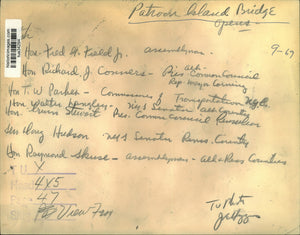 Patroon Island Bridge
opens
9-67
Hon. Fred A. Field Jr. assemblyman
Hon Richard J. Conners - Pres Common Council
Alb -
Rep mayor Corning
Hon T. W. Parker - Commissioner of Transportation
Hon Walter Langley - NYS Senator Alb County
Hon. Erwin Stewart - Pres. Common Council Rensselaer
Hudson - NYS Senator Renss. County
Hon Raymond Skuse - assemblyman - Alb & Renss Counties
T U X
4x5
47
View From
TU Photo